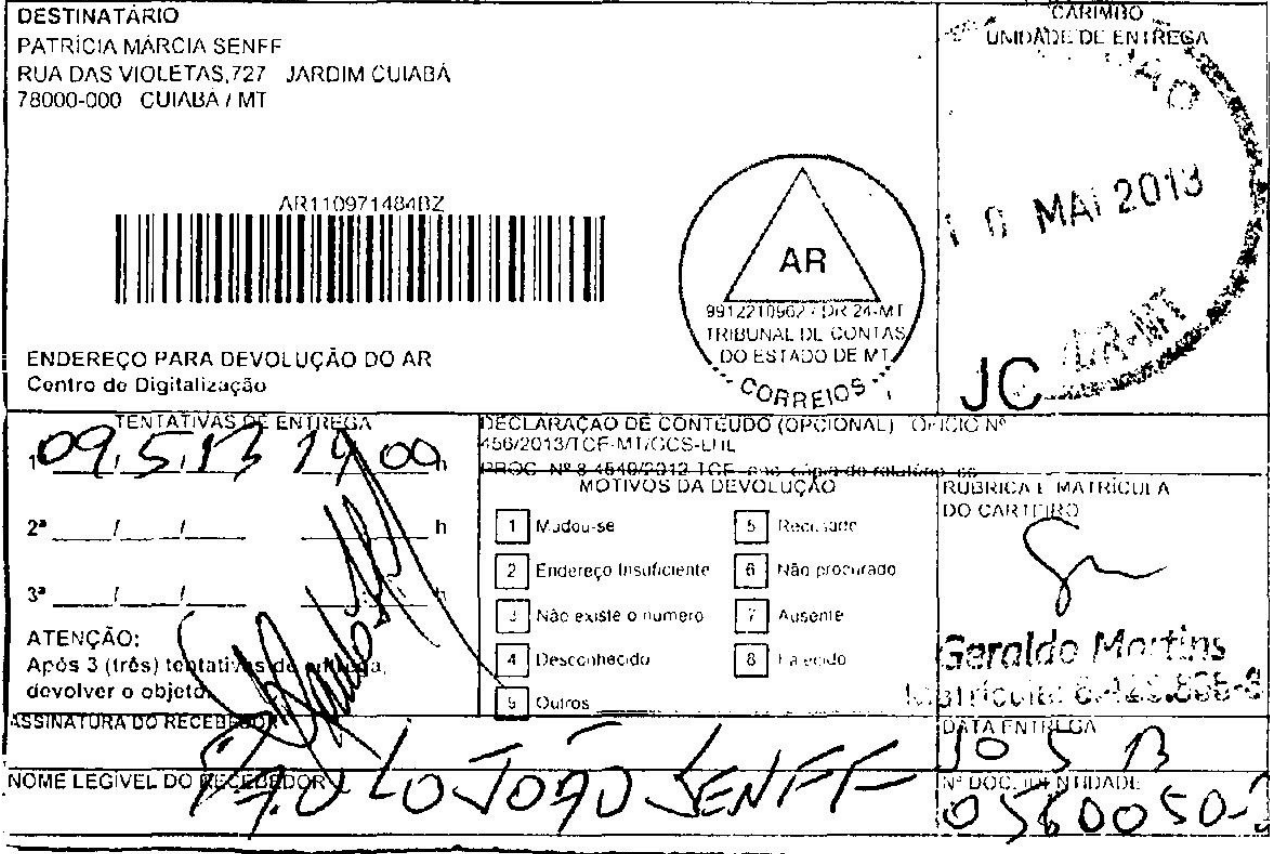 DESTINATÁRIO
PATRÍCIA MÁRCIA SENFF
RUA DAS VIOLETAS,727 JARDIM CUIABÁ
78000-000 CUIABÁ / MT
CARIMBO
UNIDADE DE ENTREGA
10 MAI 2013
/DR-MT
JC
AR110971484BZ
AR
9912210962 / DR 24-MT
TRIBUNAL DE CONTAS
DO ESTADO DE MT
CORREIOS
ENDEREÇO PARA DEVOLUÇÃO DO AR
Centro de Digitalização
TENTATIVAS DE ENTREGA
1ª 09/5/13 14:00 h
2ª ___/___/___ ___ h
3ª ___/___/___ ___ h
ATENÇÃO:
Após 3 (três) tentativas de entrega,
devolver o objeto.
DECLARAÇÃO DE CONTEÚDO (OPCIONAL) OFICIO Nº
456/2013/TCE-MT/GCS-LHL
PROC. Nº 8.4549/2012 TCE cópia do relatório
MOTIVOS DA DEVOLUÇÃO
1 Mudou-se
2 Endereço Insuficiente
3 Não existe o número
4 Desconhecido
5 Recusado
6 Não procurado
7 Ausente
8 Falecido
9 Outros
RÚBRICA E MATRÍCULA
DO CARTEIRO
Geraldo Martins
Matrícula:
ASSINATURA DO RECEBEDOR
DATA ENTREGA
10 5 13
NOME LEGÍVEL DO RECEBEDOR
PAULO JOÃO SENFF
Nº DOC. IDENTIDADE
0560050-2